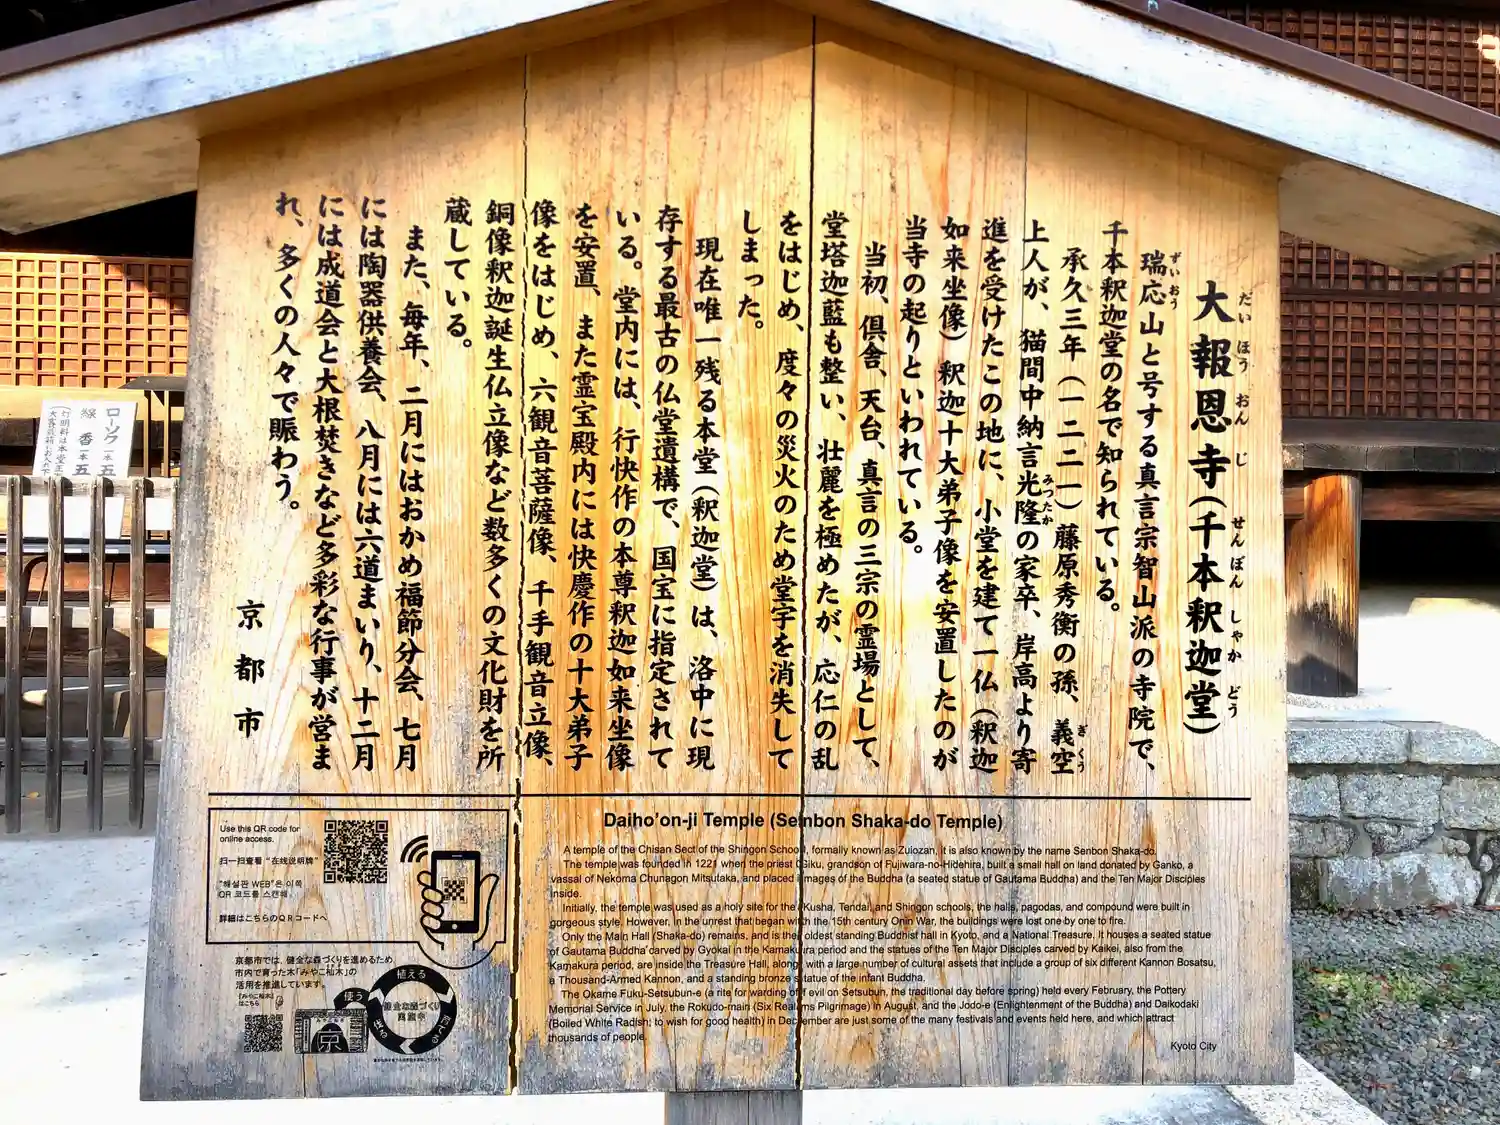 大報恩寺（千本釈迦堂）
だいほうおんじ せんぼんしゃかどう
瑞応山と号する真言宗智山派の寺院で、
ずいおう
千本釈迦堂の名で知られている。
承久三年（一二二一）藤原秀衡の孫、義空
ぎくう
上人が、猫間中納言光隆の家卒、岸高より寄
みつたか
進を受けたこの地に、小堂を建て一仏（釈迦
如来坐像）釈迦十大弟子像を安置したのが
当寺の起りといわれている。
当初、倶舎、天台、真言の三宗の霊場として、
堂塔迦藍も整い、壮麗を極めたが、応仁の乱
をはじめ、度々の災火のため堂宇を消失して
しまった。
現在唯一残る本堂（釈迦堂）は、洛中に現
存する最古の仏堂遺構で、国宝に指定されて
いる。堂内には、行快作の本尊釈迦如来坐像
を安置、また霊宝殿内には快慶作の十大弟子
像をはじめ、六観音菩薩像、千手観音立像、
銅像釈迦誕生仏立像など数多くの文化財を所
蔵している。
また、毎年、二月にはおかめ福節分会、七月
には陶器供養会、八月には六道まいり、十二月
には成道会と大根焚きなど多彩な行事が営ま
れ、多くの人々で賑わう。
京都市
ローソク 一本 五
線香 一本 五
Use this QR code for
online access.
扫一扫查看“在线说明牌”
"해설판 WEB"은 이쪽
QR 코드를 스캔해
詳細はこちらのＱＲコードへ
京都市では、健全な森づくりを進めるため、
市内で育った木「みやこ杣木」の
活用を推進しています。
【みやこ杣木】
はこちら
植える
使う
育てる
伐る
健全な森づくり
京
Daiho'on-ji Temple (Senbon Shaka-do Temple)
A temple of the Chisan Sect of the Shingon School, formally known as Zuiozan, it is also known by the name Senbon Shaka-do.
The temple was founded in 1221 when the priest Giku, grandson of Fujiwara-no-Hidehira, built a small hall on land donated by Ganko, a
vassal of Nekoma Chunagon Mitsutaka, and placed images of the Buddha (a seated statue of Gautama Buddha) and the Ten Major Disciples
inside.
Initially, the temple was used as a holy site for the Kusha, Tendai, and Shingon schools, the halls, pagodas, and compound were built in
gorgeous style. However, in the unrest that began with the 15th century Onin War, the buildings were lost one by one to fire.
Only the Main Hall (Shaka-do) remains, and is the oldest standing Buddhist hall in Kyoto, and a National Treasure. It houses a seated statue
of Gautama Buddha carved by Gyokai in the Kamakura period and the statues of the Ten Major Disciples carved by Kaikei, also from the
Kamakura period, are inside the Treasure Hall, along with a large number of cultural assets that include a group of six different Kannon Bosatsu,
a Thousand-Armed Kannon, and a standing bronze statue of the infant Buddha.
The Okame Fuku-Setsubun-e (a rite for warding off evil on Setsubun, the traditional day before spring) held every February, the Pottery
Memorial Service in July, the Rokudo-mairi (Six Realms Pilgrimage) in August, and the Jodo-e (Enlightenment of the Buddha) and Daikodaki
(Boiled White Radish; to wish for good health) in December are just some of the many festivals and events held here, and which attract
thousands of people.
Kyoto City